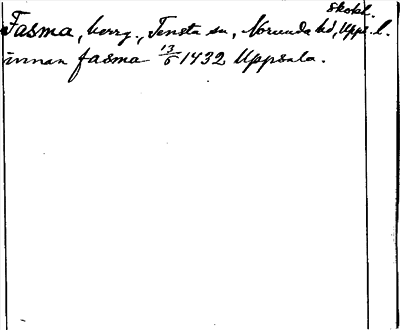 Skokl.
Fasma, herrg., Tensta sn, Norunda hd, Upps. l.
innan fasma 13/6 1432 Uppsala.